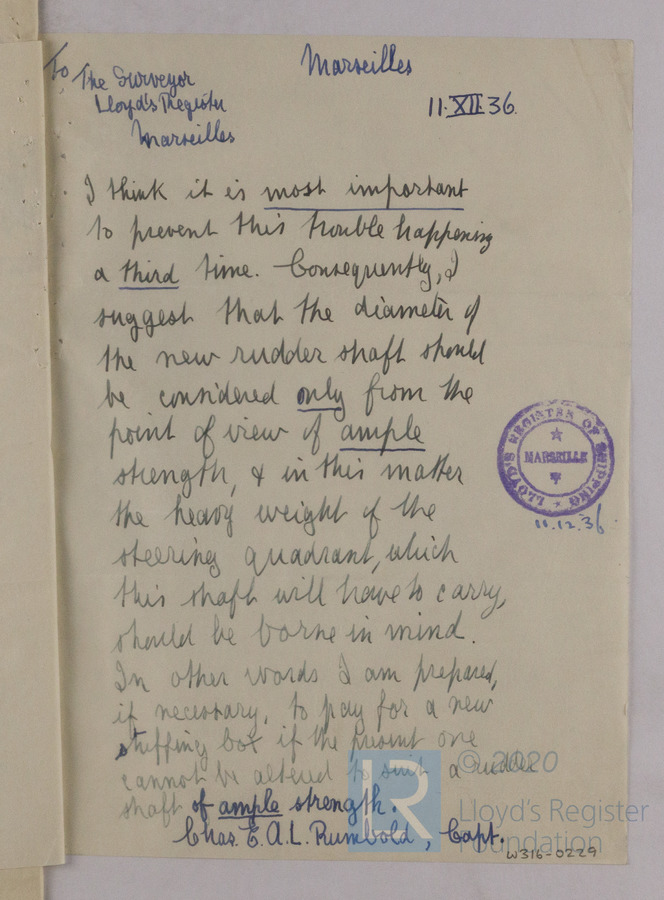 Marseilles
To The Surveyor
Lloyd's Register
Marseilles
11.XII.36.
I think it is most important
to prevent this trouble happening
a third time. Consequently, I
suggest that the diameter of
the new rudder shaft should
be considered only from the
point of view of ample
strength, & in this matter
the heavy weight of the
steering quadrant, which
this shaft will have to carry,
should be borne in mind.
In other words I am prepared,
if necessary, to pay for a new
stuffing box if the present one
cannot be altered to suit a rudder
shaft of ample strength.
Chas. E.A.L. Rumbold, Capt.
LLOYD'S REGISTER OF SHIPPING
MARSEILLE
11.12.36
© 2020
LR
Lloyd's Register
Foundation
W316-0229